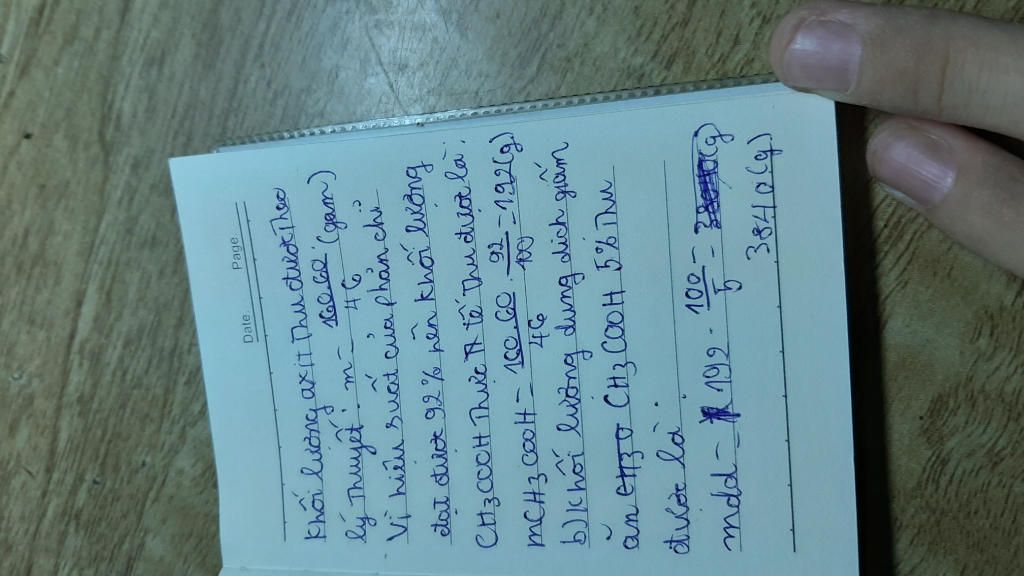 Date. Page
Khối lượng axit thu được theo
lý thuyết: m = 160.60/46 (gam)
Vì hiệu suất của phản chỉ
đạt được 92% nên khối lượng
CH3COOH thực tế thu được là:
mCH3COOH = 160.60/46 . 92/100 = 192(g)
b) Khối lượng dung dịch giấm
ăn CH3COOH 5% thu
được là.
mdd = 192 . 100/5 =
3840(g)